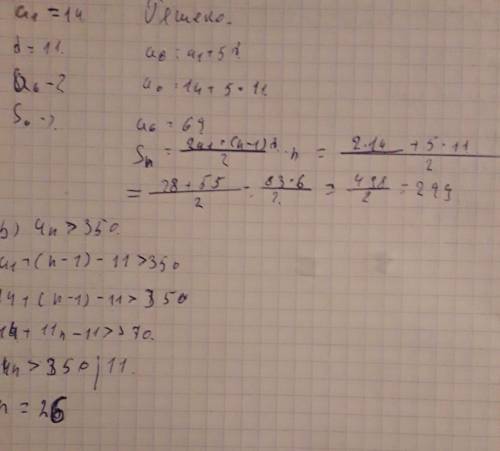 a₁ = 14
d = 11.
a₆ - ?
S₆ - ?
Решено.
a₆ = a₁ + 5d
a₆ = 14 + 5 · 11.
a₆ = 69
Sₙ = (2a₁ + (n-1)d)/2 · n = (2·14 + 5·11)/2
= (28 + 55)/2 = (83·6)/2 = 498/2 = 249
б) aₙ > 350.
a₁ + (n-1) - 11 > 350
14 + (n-1) - 11 > 350
14 + 11n - 11 >
n > 350 | 11.
n = 26